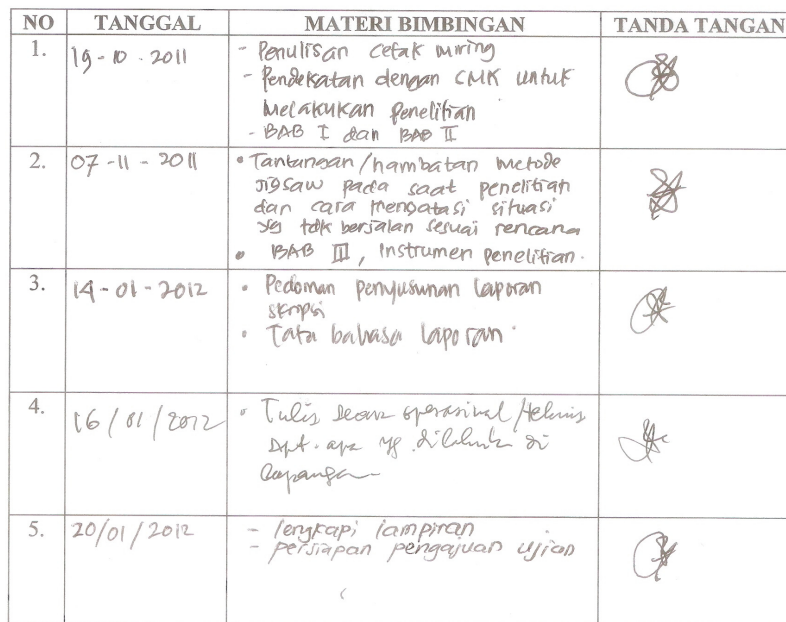 NO TANGGAL MATERI BIMBINGAN TANDA TANGAN
1. 19-10-2011 - Penulisan cetak miring
- Pendekatan dengan CMK untuk
melakukan penelitian
- BAB I dan BAB II
2. 07-11-2011 • Tantangan/hambatan metode
Jigsaw pada saat penelitian
dan cara mengatasi situasi
yg tdk berjalan sesuai rencana
• BAB III, Instrumen penelitian.
3. 14-01-2012 • Pedoman penyusunan laporan
skripsi
• Tata bahasa laporan
4. 16/01/2012 • Tulis secara operasional/teknis
apa yg di
lapangan
5. 20/01/2012 - lengkapi lampiran
- persiapan pengajuan ujian